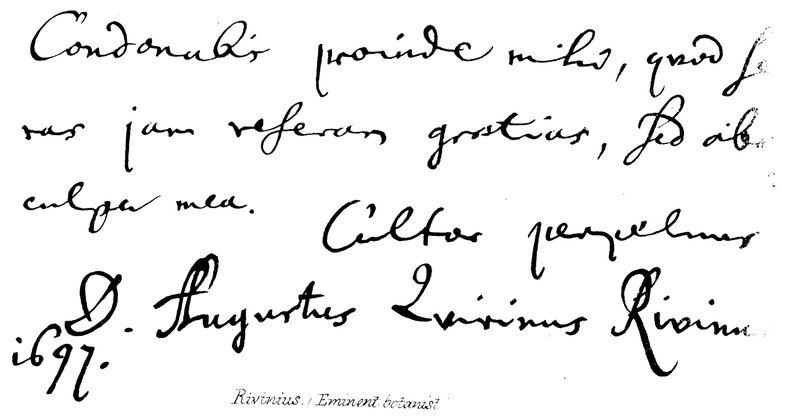 Condonabis proinde mihi, quòd se
ras jam referam gratias, sed abs
culpa mea.
Cultor perpetuus
D. Augustus Qvirinus Rivinu
1697.
Rivinius. Eminent botanist